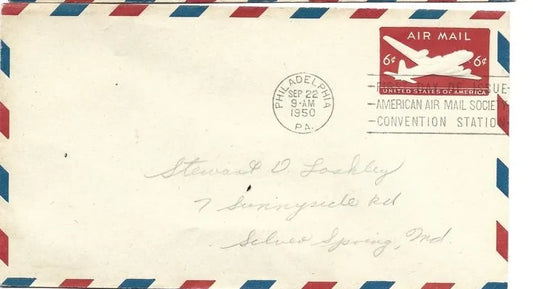 AIR MAIL
6¢ 6¢
UNITED STATES OF AMERICA
PHILADELPHIA
SEP 22
9-AM
1950
PA.
FIRST DAY OF ISSUE
AMERICAN AIR MAIL SOCIETY
CONVENTION STATION
Stewart D.
7 Sunnyside Rd
Silver Spring, Md.